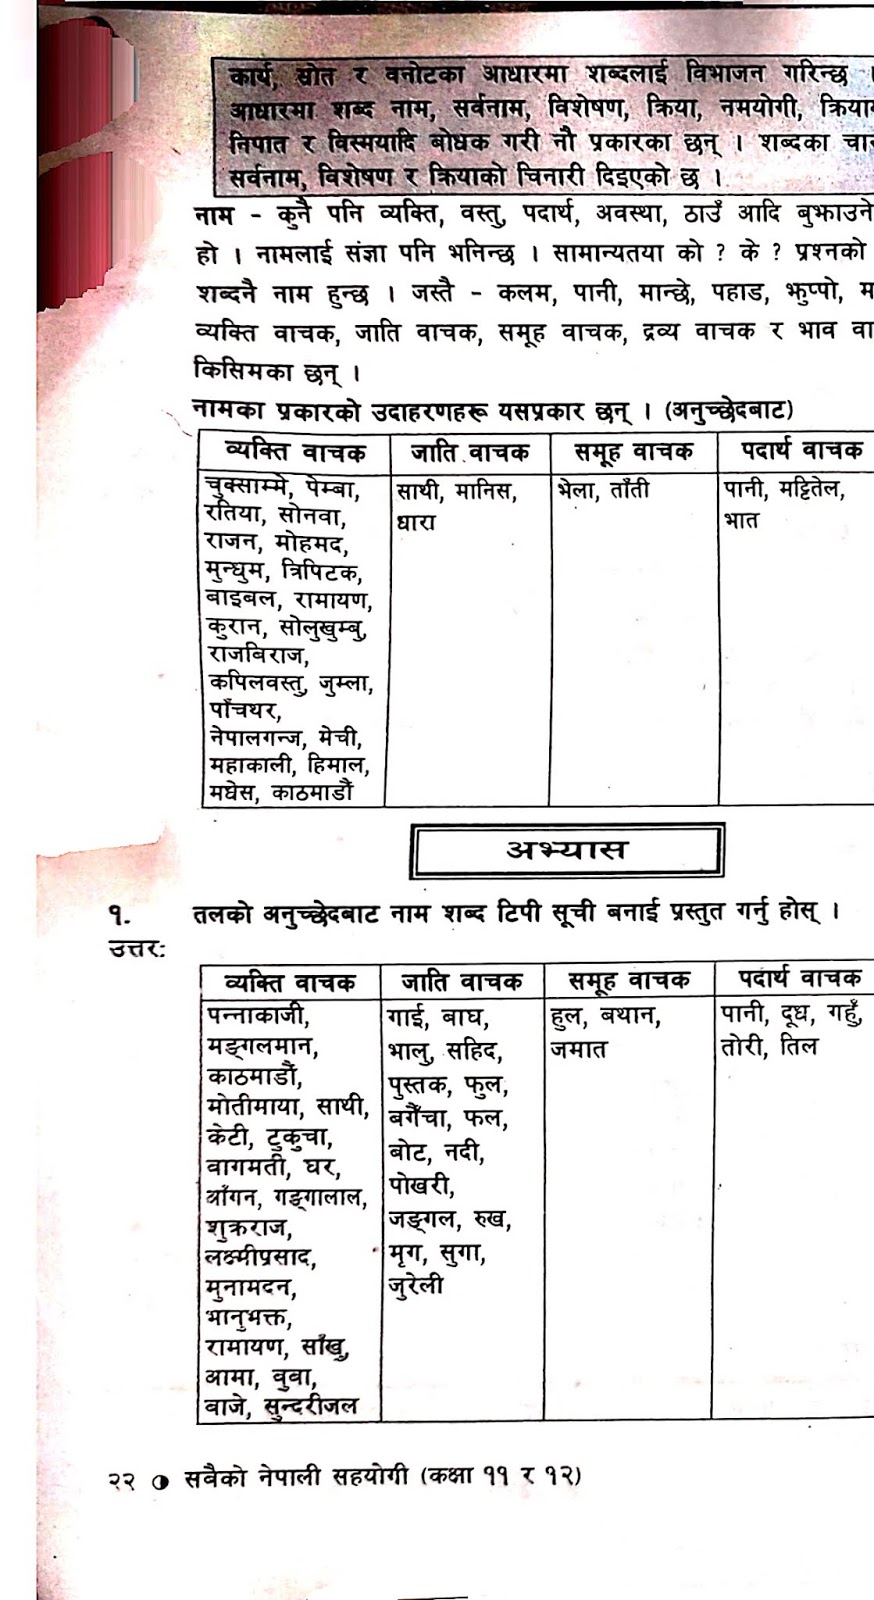 कार्य, स्रोत र बनोटका आधारमा शब्दलाई विभाजन गरिन्छ ।
आधारमा शब्द नाम, सर्वनाम, विशेषण, क्रिया, नमयोगी, क्रिया
निपात र विस्मयादि बोधक गरी नौ प्रकारका छन् । शब्दका चार
सर्वनाम, विशेषण र क्रियाको चिनारी दिइएको छ ।
नाम - कुनै पनि व्यक्ति, वस्तु, पदार्थ, अवस्था, ठाउँ आदि बुझाउने
हो । नामलाई संज्ञा पनि भनिन्छ । सामान्यतया को ? के ? प्रश्नको
शब्दनै नाम हुन्छ । जस्तै - कलम, पानी, मान्छे, पहाड, झुप्पो,
व्यक्ति वाचक, जाति वाचक, समूह वाचक, द्रव्य वाचक र भाव वा
किसिमका छन् ।
नामका प्रकारको उदाहरणहरू यसप्रकार छन् । (अनुच्छेदबाट)
व्यक्ति वाचक जाति वाचक समूह वाचक पदार्थ वाचक
चुक्साम्मे, पेम्बा, साथी, मानिस, भेला, ताँती पानी, मट्टितेल,
रतिया, सोनवा, धारा भात
राजन, मोहमद,
मुन्धुम, त्रिपिटक,
बाइबल, रामायण,
कुरान, सोलुखुम्बु,
राजबिराज,
कपिलवस्तु, जुम्ला,
पाँचथर,
नेपालगन्ज, मेची,
महाकाली, हिमाल,
मधेस, काठमाडौं
अभ्यास
१. तलको अनुच्छेदबाट नाम शब्द टिपी सूची बनाई प्रस्तुत गर्नु होस् ।
उत्तर:
व्यक्ति वाचक जाति वाचक समूह वाचक पदार्थ वाचक
पन्नाकाजी, गाई, बाघ, हुल, बथान, पानी, दूध, गहुँ,
मङ्गलमान, भालु, सहिद, जमात तोरी, तिल
काठमाडौं, पुस्तक, फुल,
मोतीमाया, साथी, बगैँचा, फल,
केटी, टुकुचा, बोट, नदी,
वागमती, घर, पोखरी,
आँगन, गङ्गालाल, जङ्गल, रुख,
शुक्रराज, मृग, सुगा,
लक्ष्मीप्रसाद, जुरेली
मुनामदन,
भानुभक्त,
रामायण, साँखु,
आमा, वुवा,
बाजे, सुन्दरीजल
२२ सबैको नेपाली सहयोगी (कक्षा ११ र १२)